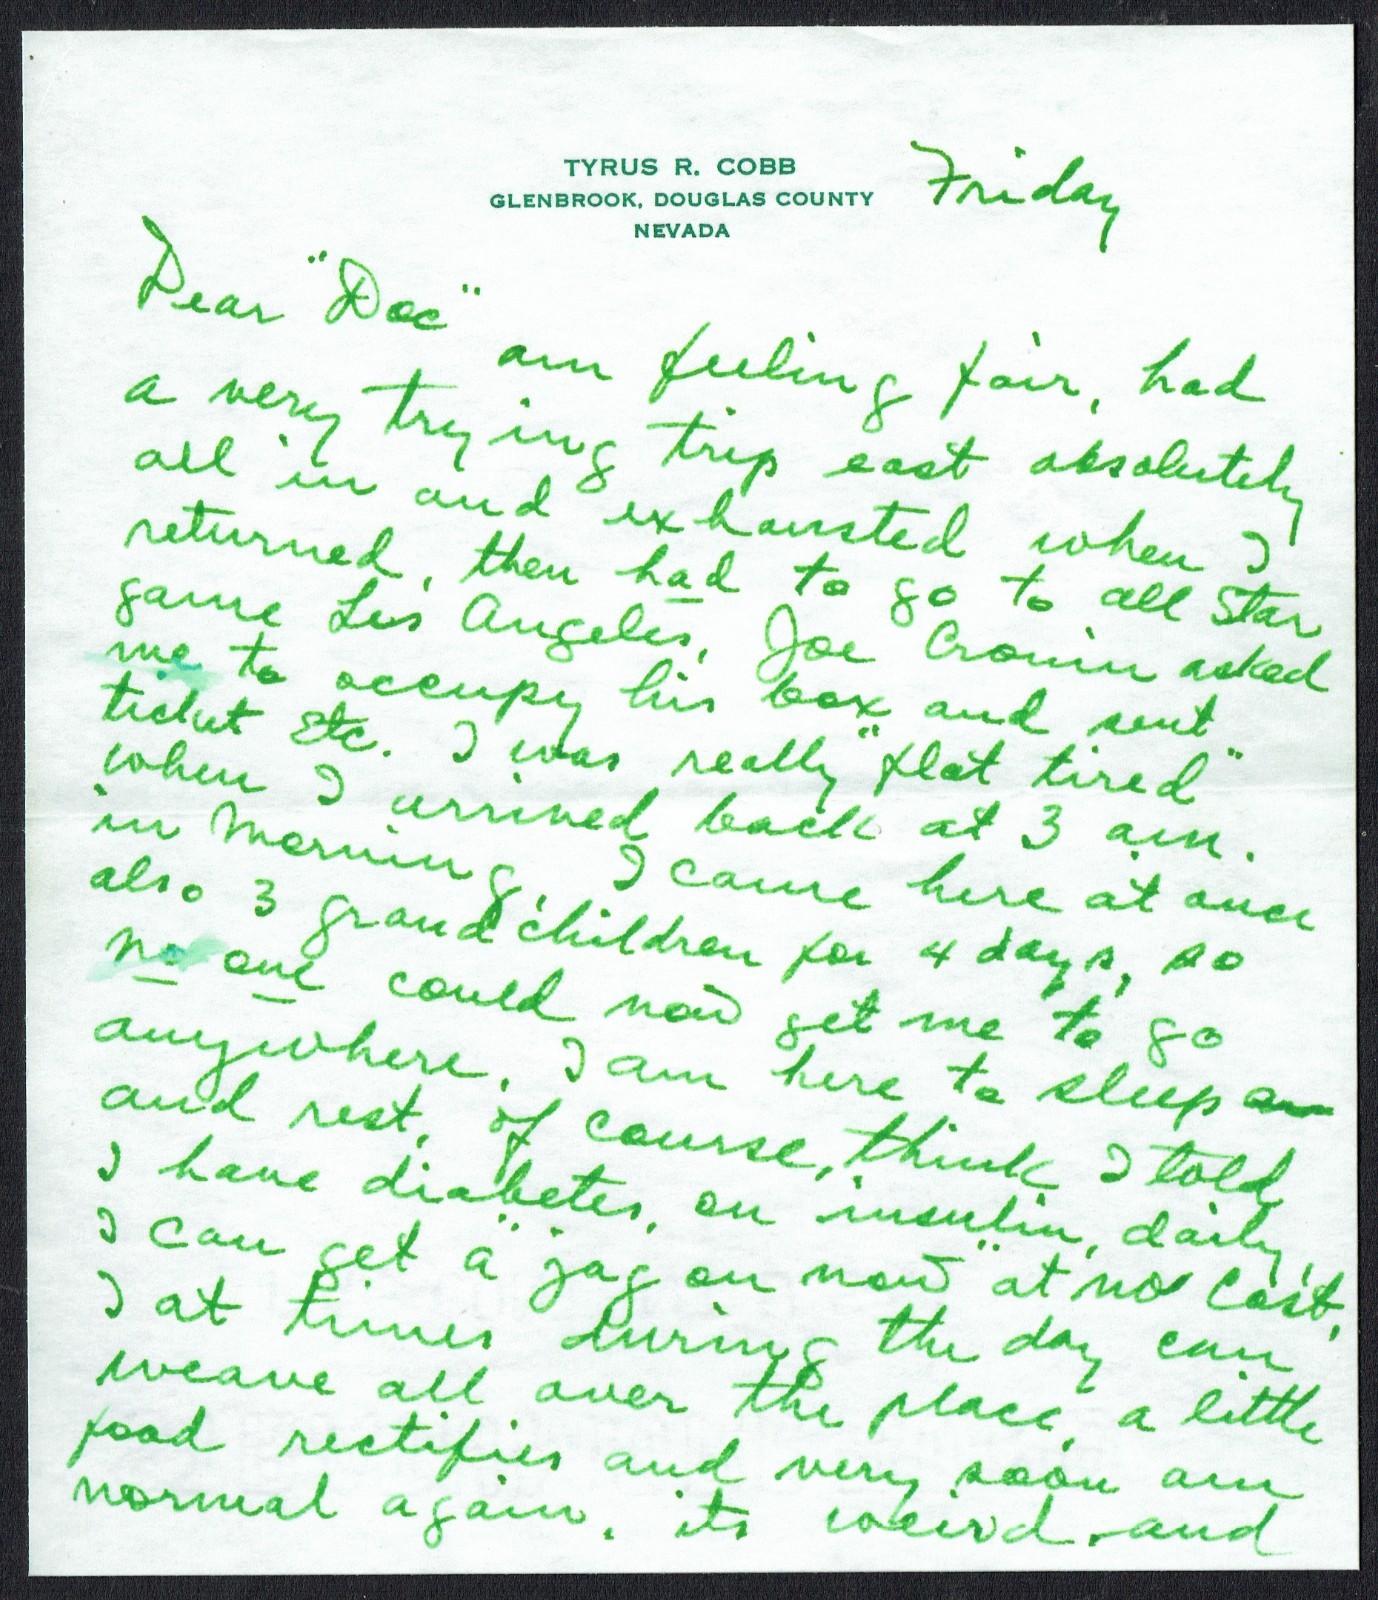 TYRUS R. COBB
GLENBROOK, DOUGLAS COUNTY
NEVADA
Friday
Dear "Doc"
am feeling fair, had
a very trying trip east absolutely
all in and exhausted when I
returned, then had to go to all Star
game Los Angeles, Joe Cronin asked
me to occupy his box and sent
ticket etc. I was really "flat tired"
when I arrived back at 3 am.
in morning, I came here at once
also 3 grand children for 4 days, so
no one could now get me to go
anywhere, I am here to sleep
and rest, of course, think I told
I have diabetes, on insulin, daily,
I can get a "jag on now" at no cost,
I at times during the day can
weave all over the place, a little
food rectifies and very soon am
normal again, its weird, and